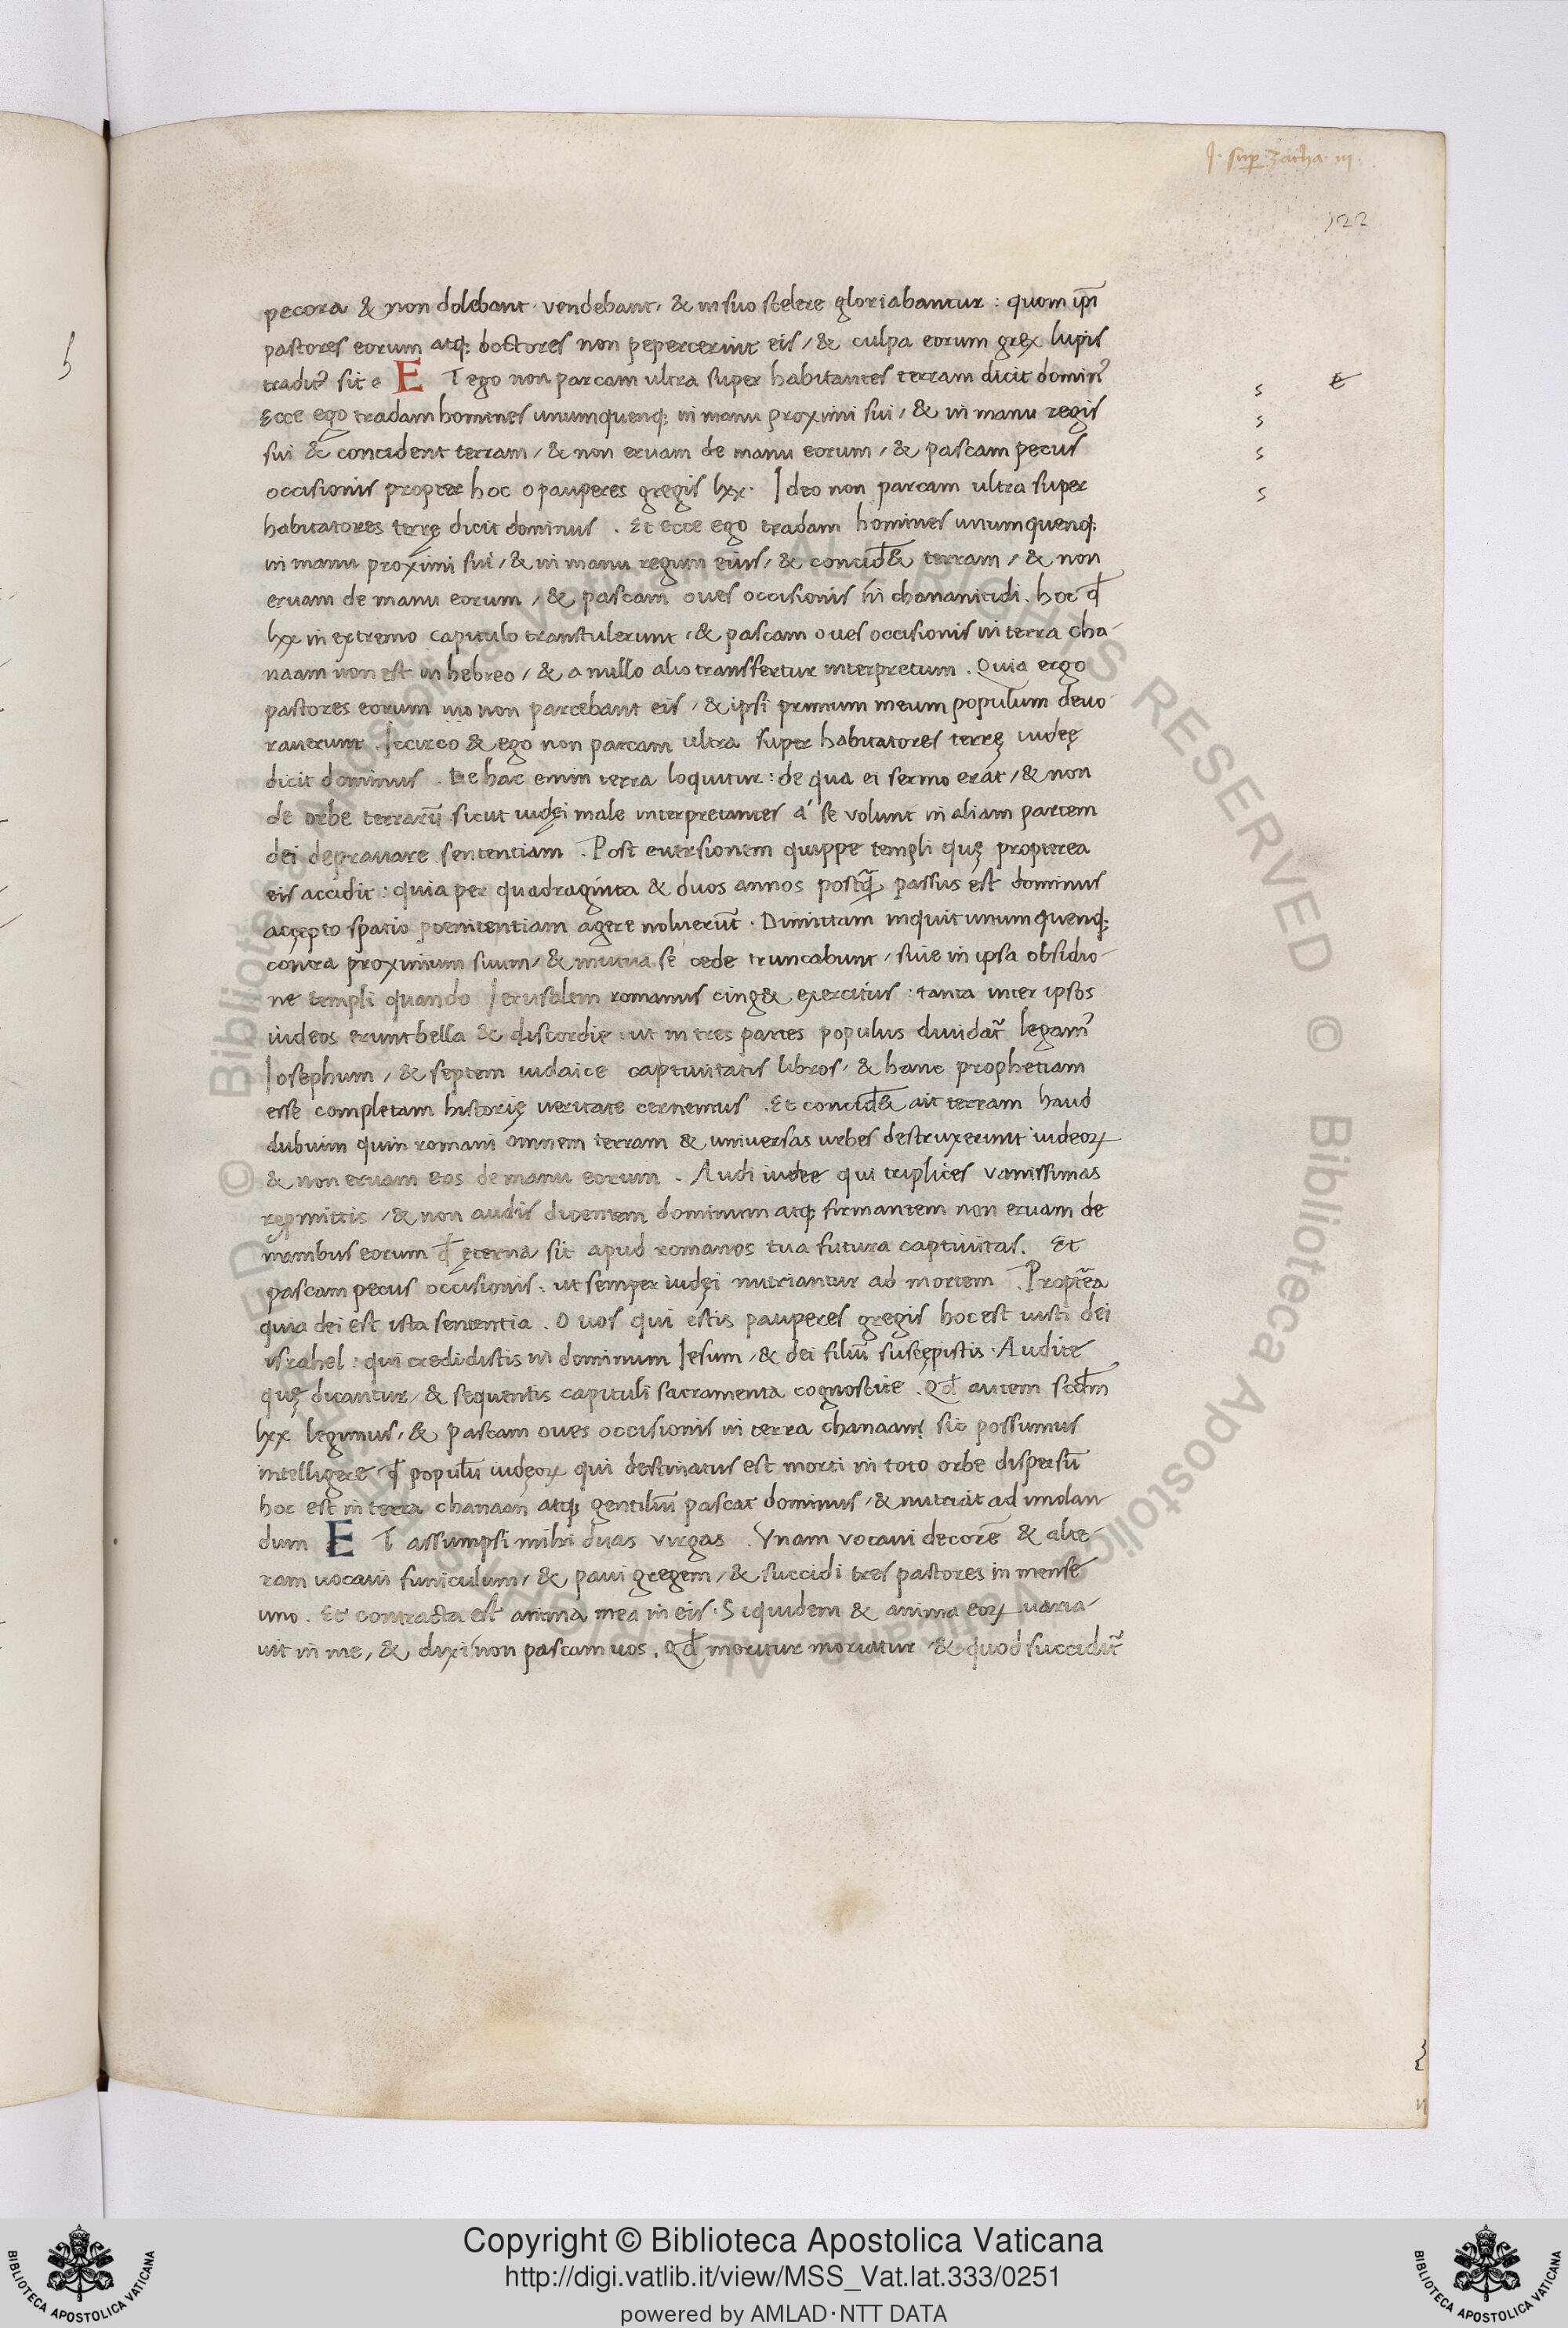 J. sup Zacha. III
122
pecora & non dolebant. vendebant, & in suo scelere gloriabantur : quom ipsi
pastores eorum atq; doctores non pepercerint eis, & culpa eorum grex lupis
tradit9 sit E T ego non parcam ultra super habitantes terram dicit domin9
Ecce ego tradam homines unumquenq; in manu proximi sui, & in manu regis
sui & concident terram, & non eruam de manu eorum, & pascam pecus
occisionis propter hoc o pauperes gregis lxx. Ideo non parcam ultra super
habitatores terrę dicit dominus . Et ecce ego tradam homines unumquenq;
in manu proximi sui, & in manu regum eius, & concid& terram, & non
eruam de manu eorum, & pascam oues occisionis in chananitidi. hoc qđ
lxx in extremo capitulo transtulerunt, & pascam oues occisionis in terra cha-
naam non est in hebreo, & a nullo alio transfertur interpretum . Quia ergo
pastores eorum non parcebant eis, & ipsi primum meum populum deuo-
rauerunt . Iccirco & ego non parcam ultra super habitatores terrę iudeę
dicit dominus . De hac enim terra loquitur : de qua ei sermo erat, & non
de orbe terrarū sicut iudęi male interpretantes a se volunt in aliam partem
dei deprauare sententiam . Post euersionem quippe templi quę propterea
eis accidit : quia per quadraginta & duos annos postq̄ passus est dominus
accepto spatio poenitentiam agere noluerūt . Dimittam inquit unumquenq;
contra proximum suum, & mutua se cede truncabunt, siue in ipsa obsidio-
ne templi quando Jerusalem romanus cing& exercitus : tanta inter ipsos
iudeos erunt bella & discordie : ut in tres partes populus diuidat~ legam9
Josephum, & septem iudaice captiuitatis libros, & hanc prophetiam
esse completam historię ueritate cernemus . Et concid& ait terram haud
dubium quin romani omnem terram & universas urbes destruxerunt iudeoꝝ
& non eruam eos de manu eorum . Audi iudee qui triplices vanissimas
repmittis, & non audis dicentem dominum atq; firmantem non eruam de
manibus eorum qđ ęterna sit apud romanos tua futura captiuitas. Et
pascam pecus occisionis : ut semper iudęi nutriantur ad mortem . Propt~ea
quia dei est ista sententia . O uos qui estis pauperes gregis hoc est iusti dei
israhel : qui credidistis in dominum Jesum, & dei filiū suscępistis . Audite
quę dicantur, & sequentis capituli sacramenta cognoscite . Qđ autem scđm
lxx legimus, & pascam oues occisionis in terra chanaam sic possumus
intelligere qđ populū iudęoꝝ qui destinatus est morti in toto orbe dispersū
hoc est in terra chanaan atq; gentiliū pascat dominus, & nutriat ad imolan
dum E T assumpsi mihi duas virgas . Vnam vocaui decorē & alte-
ram uocaui funiculum, & paui gregem, & succidi tres pastores in mense
uno . Et contracta est anima mea in eis . Siquidem & anima eoꝝ uaria-
uit in me, & dixi non pascam uos . Qđ moritur moriatur, & quod succidit~
s
s
s
s
Copyright © Biblioteca Apostolica Vaticana
http://digi.vatlib.it/view/MSS_Vat.lat.333/0251
powered by AMLAD·NTT DATA
BIBLIOTECA APOSTOLICA VATICANA
BIBLIOTECA APOSTOLICA VATICANA